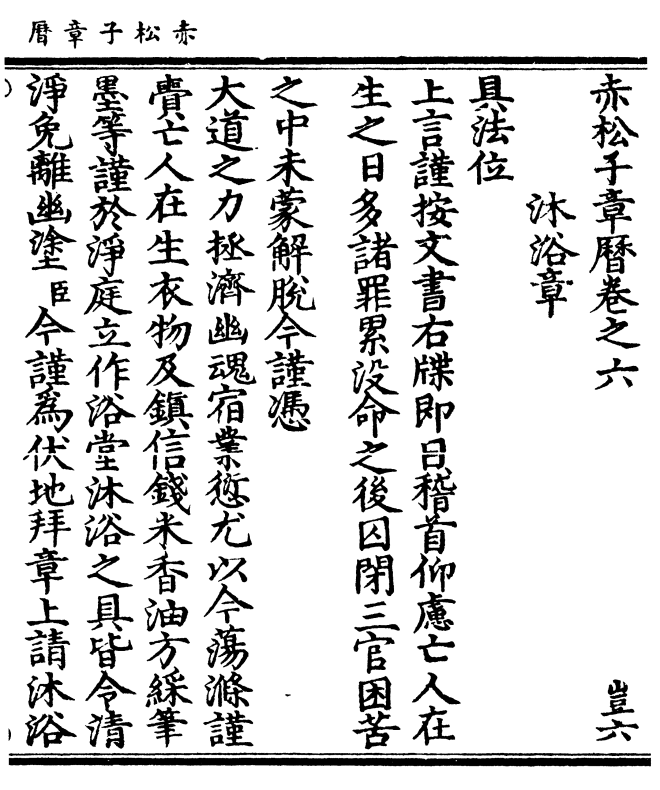 赤松子章曆
赤松子章曆卷之六　豈六
沐浴章
具法位
上言謹按文書右牒即日稽首仰慮亡人在
生之日多諸罪累没命之後囚閉三官困苦
之中未蒙解脫今謹憑
大道之力拯濟幽魂宿業愆尤以今蕩滌謹
賷亡人在生衣物及鎮信錢米香油方綵筆
墨等謹於淨庭立作浴堂沐浴之具皆令清
淨免離幽塗臣今謹爲伏地拜章上請沐浴